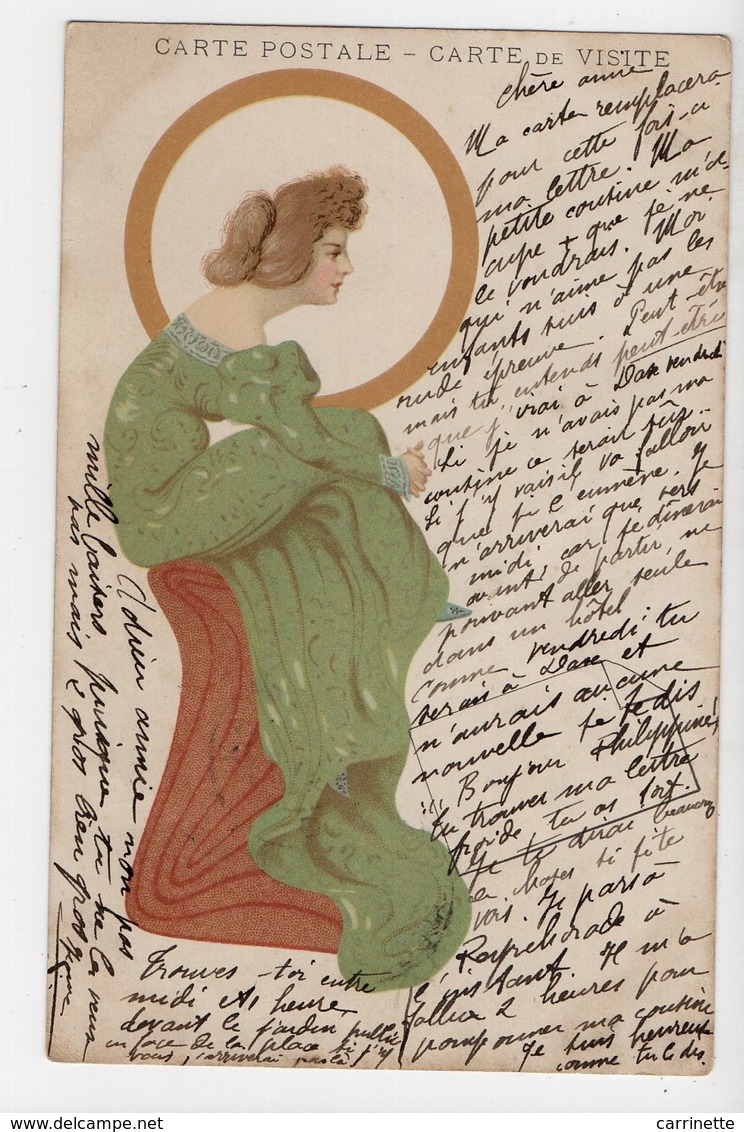 CARTE POSTALE - CARTE DE VISITE
chère amie
Ma carte remplacera
pour cette fois-ci
ma lettre. Ma
petite cousine m'oc
cupe + que je ne
le voudrais. Moi
qui n'aime pas les
enfants suis à une
rude épreuve. Peut-être
mais tu entends peut-être
que j'irai à Dax vendredi
Si je n'avais pas ma
cousine ce serait sûr..
Si j'y vais il va falloir
que je l'emmène. Je
n'arriverai que vers
midi, car je dînerai
avant de partir, ne
pouvant aller seule
dans un hôtel
Comme vendredi tu
serais à Dax et
n'aurais aucune
nouvelle je te dis
"Bonjour Philippine"
Tu trouves ma lettre
froide tu as tort.
Je te dirai beaucoup
de choses si je te
vois. Je pars à
Peyrehorade à
l'instant. Il m'a
fallu 2 heures pour
pomponner ma cousine
Je suis heureuse
comme tu le dis.
Trouves-toi entre
midi et 1 heure,
devant le jardin public
en face de la place si j'y
vais, j'arriverai par là
Adieu amie non pas
mille baisers puisque tu ne les veux
pas mais 2 gros bien gros